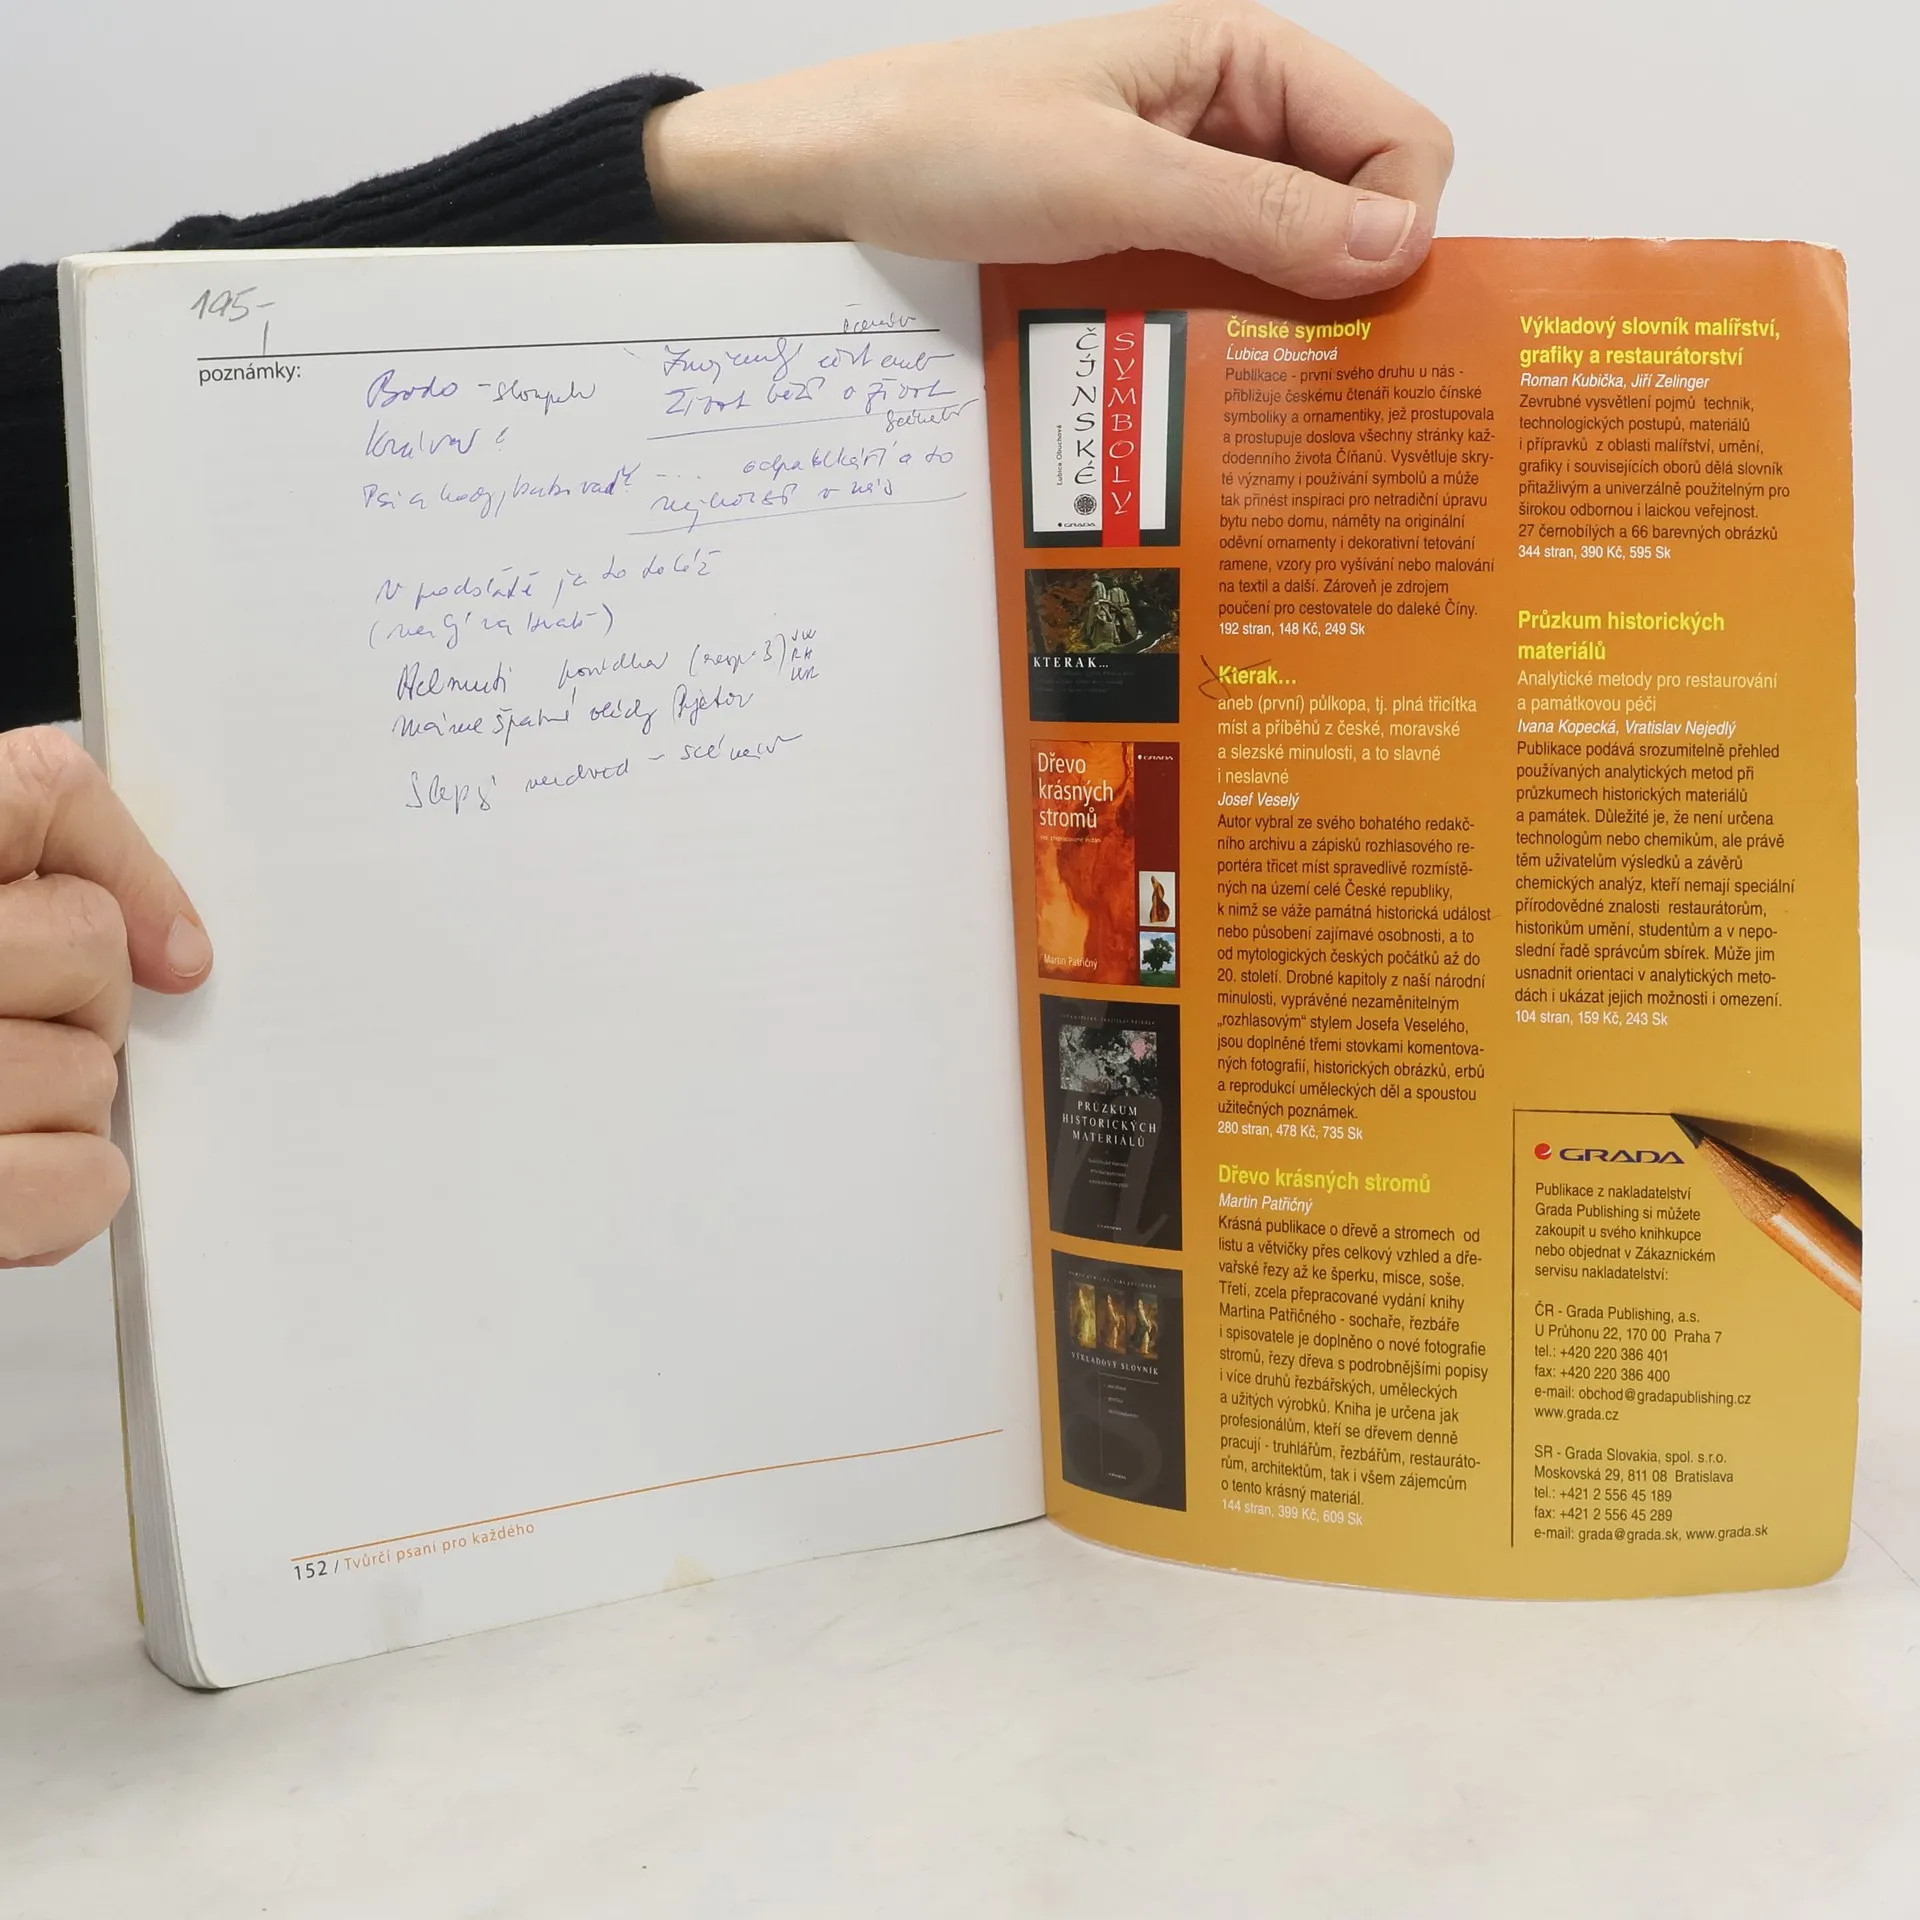 195-
poznámky:
Bodo - sloupek
život běží o život
Psi a
... odpadlkáři a to
nejhorší v nás
v podstatě je to totéž
Helmuti povídka
máme špatné vlády
Slepý - scénář
152 / Tvůrčí psaní pro každého
ČÍNSKÉ
SYMBOLY
Ľubica Obuchová
GRADA
KTERAK...
GRADA
Dřevo
krásných
stromů
Martin Patřičný
PRŮZKUM
HISTORICKÝCH
MATERIÁLŮ
VÝKLADOVÝ SLOVNÍK
Čínské symboly
Ľubica Obuchová
Publikace - první svého druhu u nás -
přibližuje českému čtenáři kouzlo čínské
symboliky a ornamentiky, jež prostupovala
a prostupuje doslova všechny stránky kaž-
dodenního života Číňanů. Vysvětluje skry-
té významy i používání symbolů a může
tak přinést inspiraci pro netradiční úpravu
bytu nebo domu, náměty na originální
oděvní ornamenty i dekorativní tetování
ramene, vzory pro vyšívání nebo malování
na textil a další. Zároveň je zdrojem
poučení pro cestovatele do daleké Číny.
192 stran, 148 Kč, 249 Sk
Kterak...
aneb (první) půlkopa, tj. plná třicítka
míst a příběhů z české, moravské
a slezské minulosti, a to slavné
i neslavné
Josef Veselý
Autor vybral ze svého bohatého redakč-
ního archivu a zápisků rozhlasového re-
portéra třicet míst spravedlivě rozmístě-
ných na území celé České republiky,
k nimž se váže památná historická událost
nebo působení zajímavé osobnosti, a to
od mytologických českých počátků až do
20. století. Drobné kapitoly z naší národní
minulosti, vyprávěné nezaměnitelným
„rozhlasovým“ stylem Josefa Veselého,
jsou doplněné třemi stovkami komentova-
ných fotografií, historických obrázků, erbů
a reprodukcí uměleckých děl a spoustou
užitečných poznámek.
280 stran, 478 Kč, 735 Sk
Dřevo krásných stromů
Martin Patřičný
Krásná publikace o dřevě a stromech od
listu a větvičky přes celkový vzhled a dře-
vařské řezy až ke šperku, misce, soše.
Třetí, zcela přepracované vydání knihy
Martina Patřičného - sochaře, řezbáře
i spisovatele je doplněno o nové fotografie
stromů, řezy dřeva s podrobnějšími popisy
i více druhů řezbářských, uměleckých
a užitých výrobků. Kniha je určena jak
profesionálům, kteří se dřevem denně
pracují - truhlářům, řezbářům, restauráto-
rům, architektům, tak i všem zájemcům
o tento krásný materiál.
144 stran, 399 Kč, 609 Sk
Výkladový slovník malířství,
grafiky a restaurátorství
Roman Kubička, Jiří Zelinger
Zevrubné vysvětlení pojmů technik,
technologických postupů, materiálů
i přípravků z oblasti malířství, umění,
grafiky i souvisejících oborů dělá slovník
přitažlivým a univerzálně použitelným pro
širokou odbornou i laickou veřejnost.
27 černobílých a 66 barevných obrázků
344 stran, 390 Kč, 595 Sk
Průzkum historických
materiálů
Analytické metody pro restaurování
a památkovou péči
Ivana Kopecká, Vratislav Nejedlý
Publikace podává srozumitelně přehled
používaných analytických metod při
průzkumech historických materiálů
a památek. Důležité je, že není určena
technologům nebo chemikům, ale právě
těm uživatelům výsledků a závěrů
chemických analýz, kteří nemají speciální
přírodovědné znalosti restaurátorům,
historikům umění, studentům a v nepo-
slední řadě správcům sbírek. Může jim
usnadnit orientaci v analytických meto-
dách i ukázat jejich možnosti i omezení.
104 stran, 159 Kč, 243 Sk
GRADA
Publikace z nakladatelství
Grada Publishing si můžete
zakoupit u svého knihkupce
nebo objednat v Zákaznickém
servisu nakladatelství:
ČR - Grada Publishing, a.s.
U Průhonu 22, 170 00 Praha 7
tel.: +420 220 386 401
fax: +420 220 386 400
e-mail: obchod@gradapublishing.cz
www.grada.cz
SR - Grada Slovakia, spol. s.r.o.
Moskovská 29, 811 08 Bratislava
tel.: +421 2 556 45 189
fax: +421 2 556 45 289
e-mail: grada@grada.sk, www.grada.sk